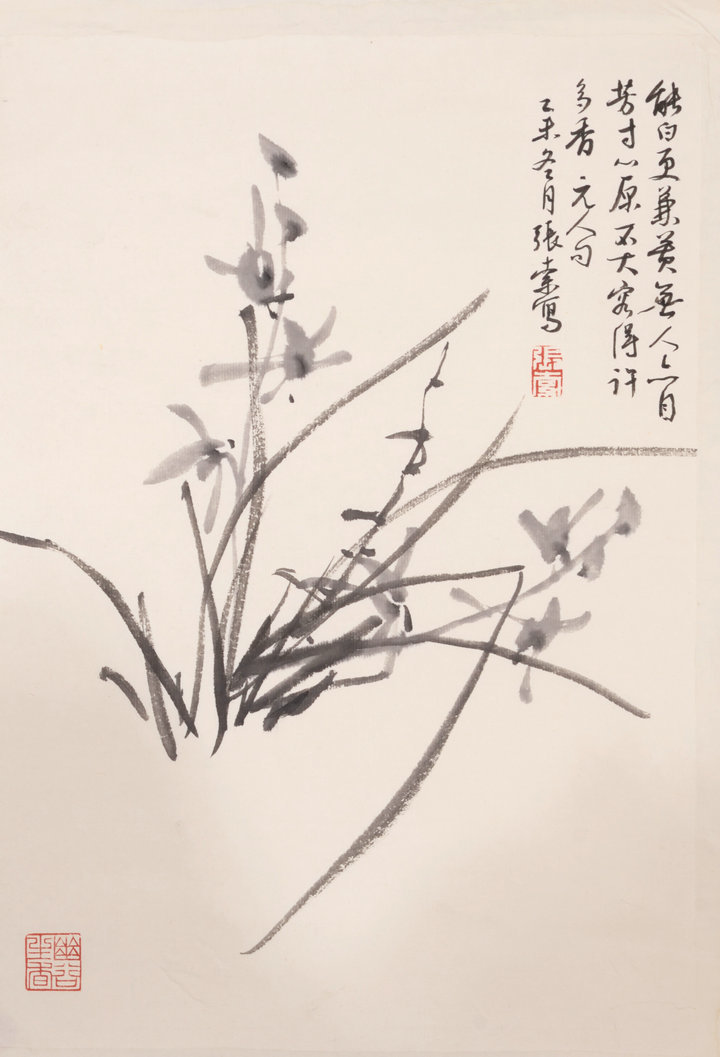 能白更兼黃無人亦自
芳寸心原不大容得許
多香 元人句
乙未冬月張索寫
張索
幽谷
生香